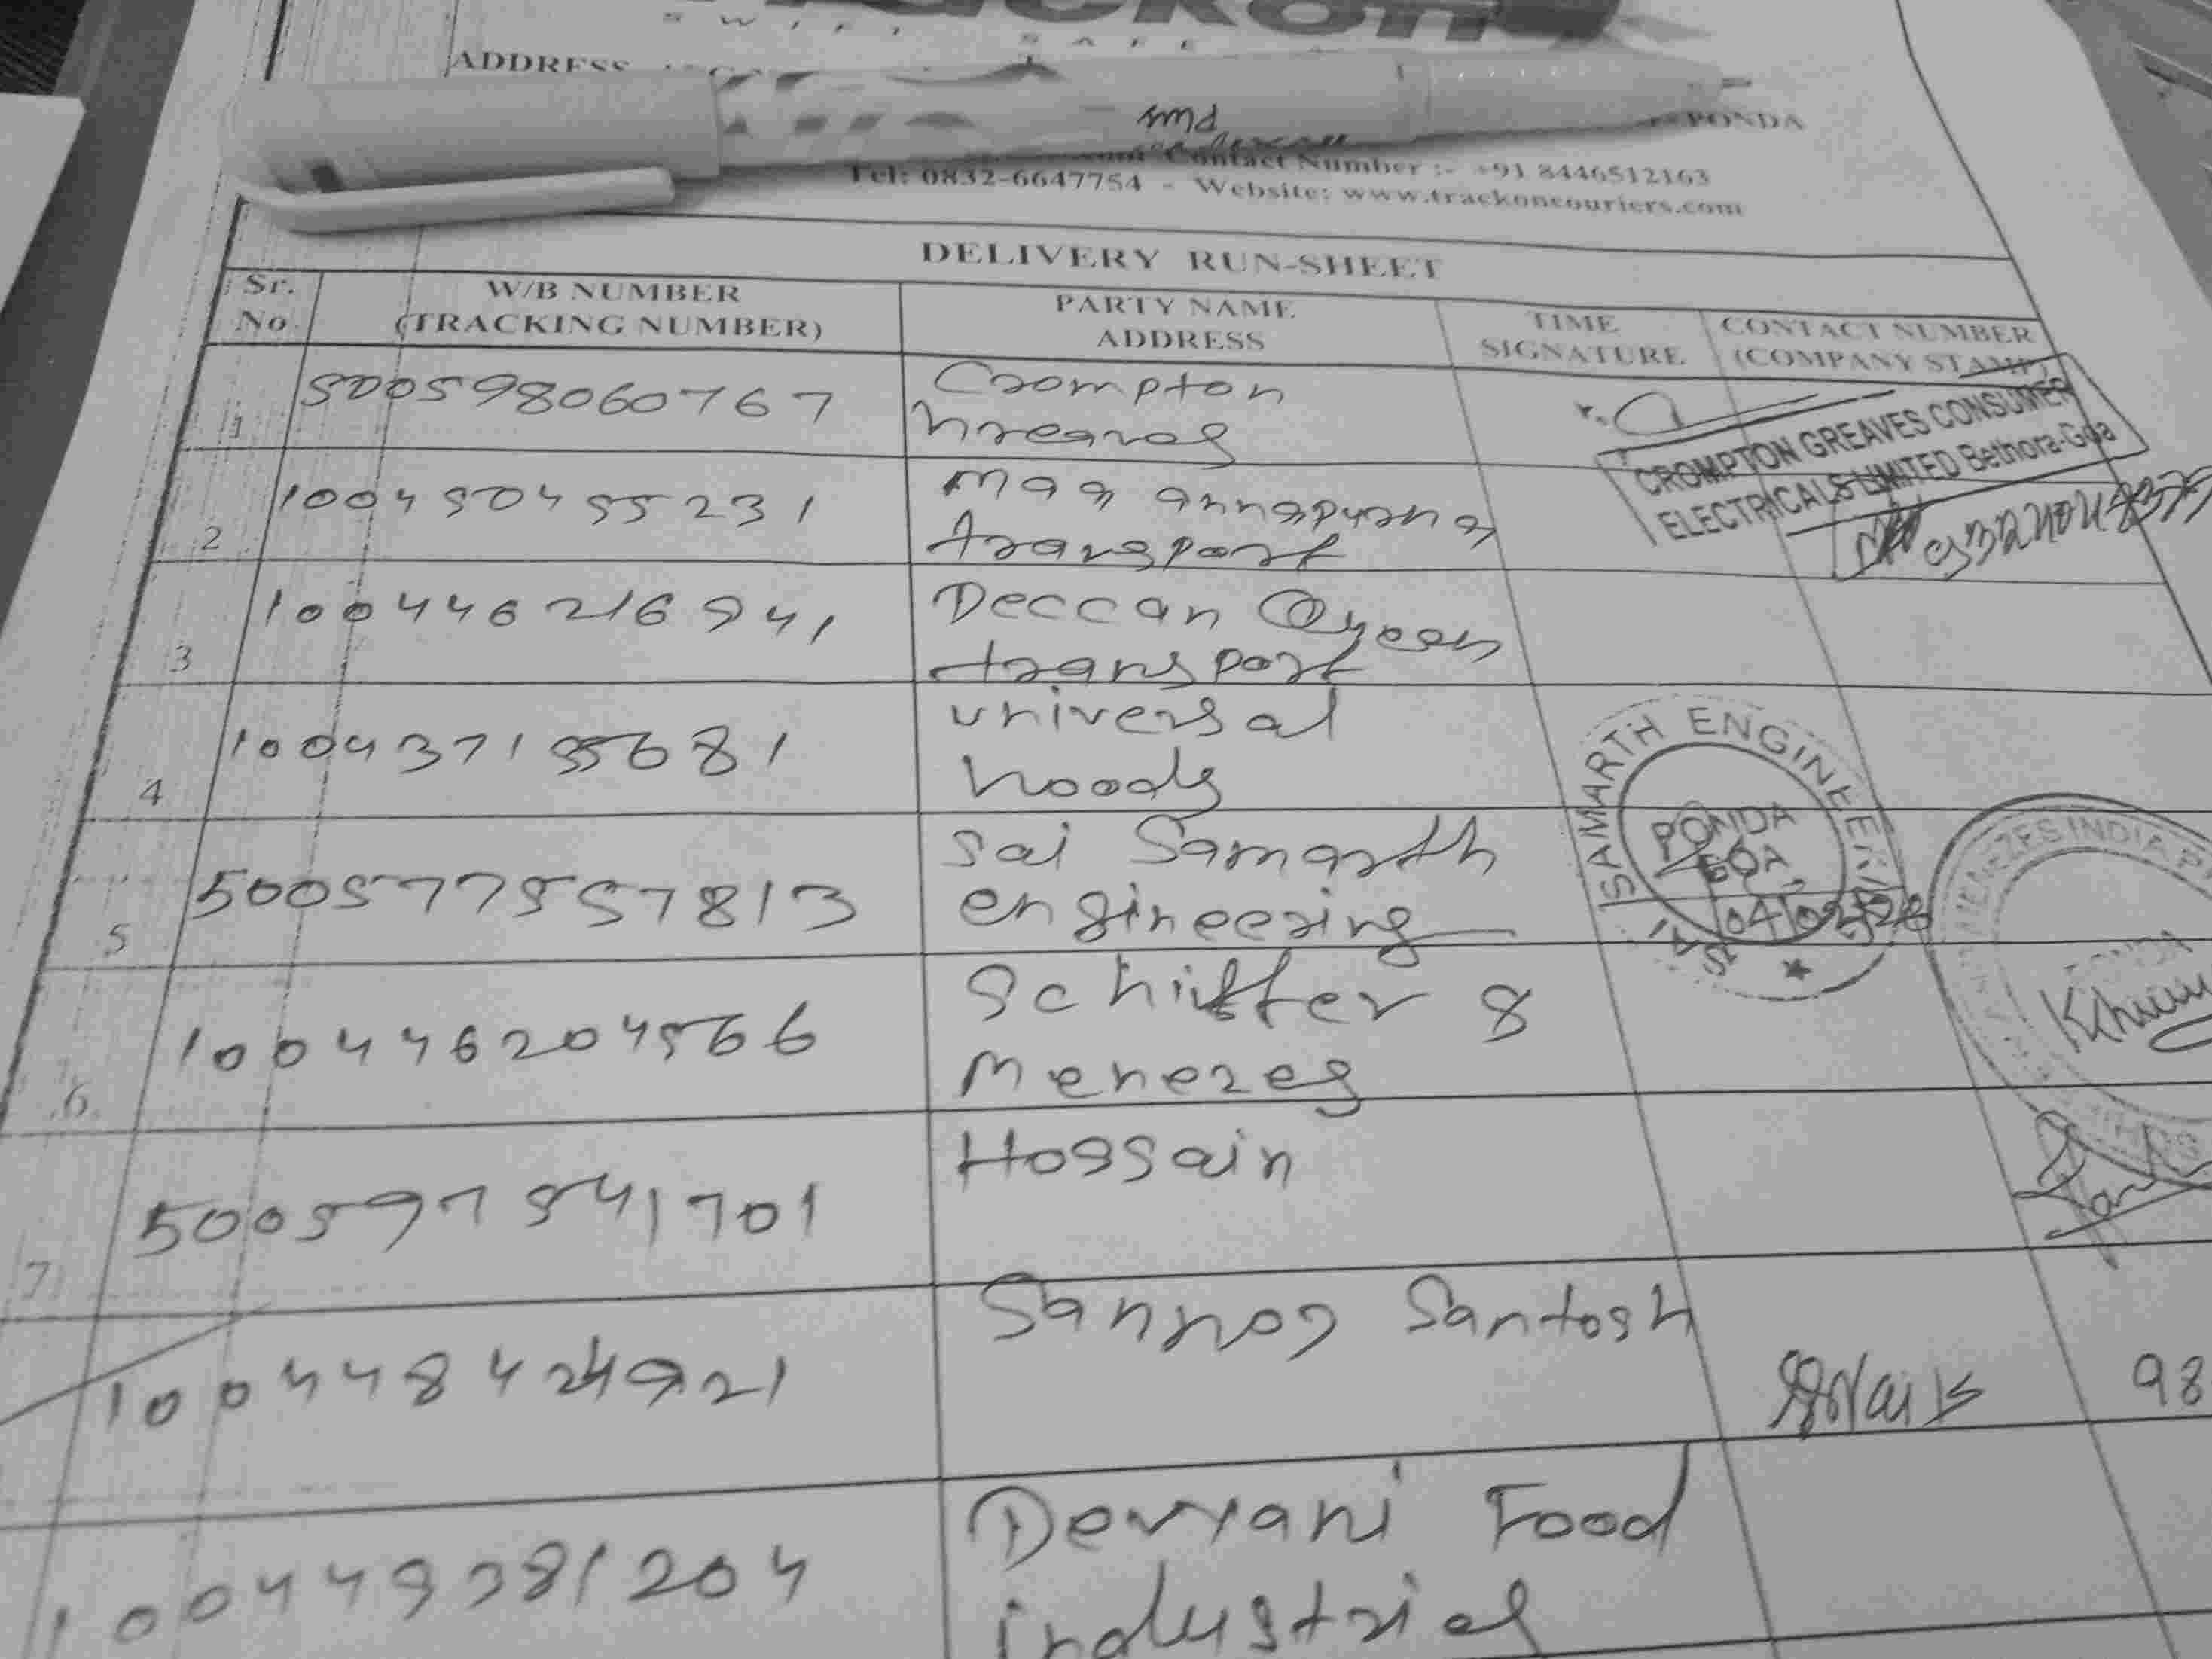 ADDRESS
PONDA
Contact Number :- +91 8446512163
Tel: 0832-6647754 - Website: www.trackoncouriers.com
DELIVERY RUN-SHEET
Sr. No
W/B NUMBER (TRACKING NUMBER)
PARTY NAME ADDRESS
TIME SIGNATURE
CONTACT NUMBER (COMPANY STAMP)
1 500598060767 Crompton
Greaves
CROMPTON GREAVES CONSUMER
ELECTRICALS LIMITED Bethora-Goa
2 100450455231 Maa annapurna
transport
3 100446216941 Deccan Queen
transport
4 100437155681 Universal
Goods
5 500577557813 Sai Samarth
engineering
SAI SAMARTH ENGINEERING
PONDA
GOA
6 100446204566 Schiffer &
Menezes
MENEZES INDIA
7 500597541701 Hossain
100448424921 Santosh
98
100449381204 Devyani Food
industries